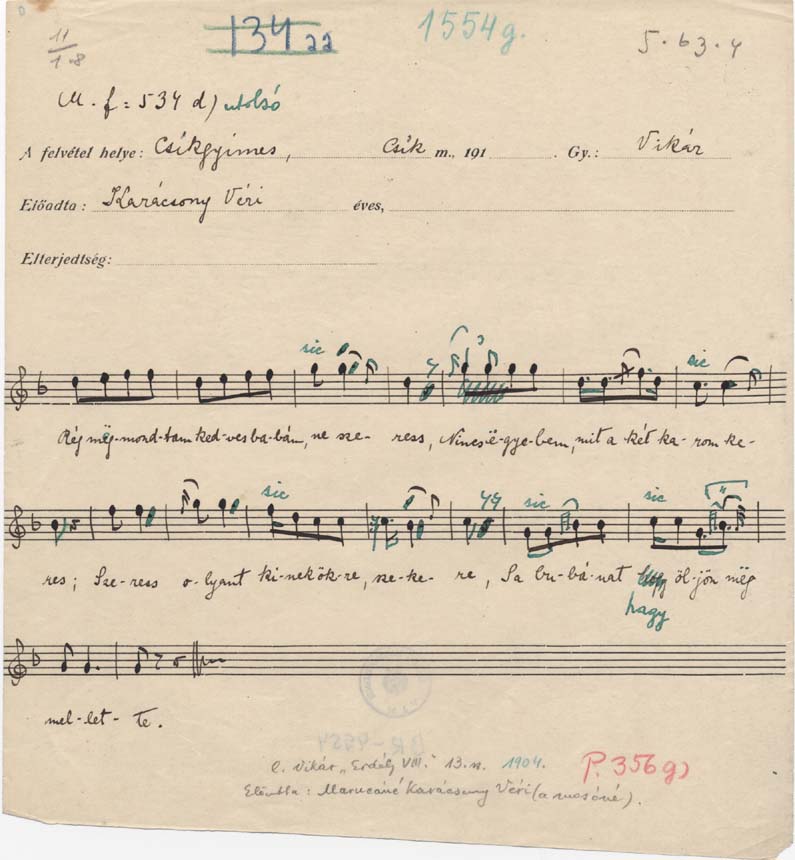 11/1·8
134 aa
1554g.
5·63·4
M. f = 534 d) utolsó
A felvétel helye: Csíkgyimes, Csík m., 191 . Gy.: Vikár
Előadta: Karácsony Véri éves,
Elterjedtség:
sic 3 sic
Rég mëg-mond-tam ked-ves ba-bám, ne sze- ress, Nincs ë-gye-bem, mit a két ka- rom ke-
sic sic sic
res; Sze-ress o-lyant ki-nek ök-re, sze-ke- re, Sa bu-bá-nat öl-jön mëg
hagy
mel-let- te.
BR-9554
l. Vikár „Erdély VIII." 13. 1904.
P. 356 g)
Előadta: Karácsony Véri